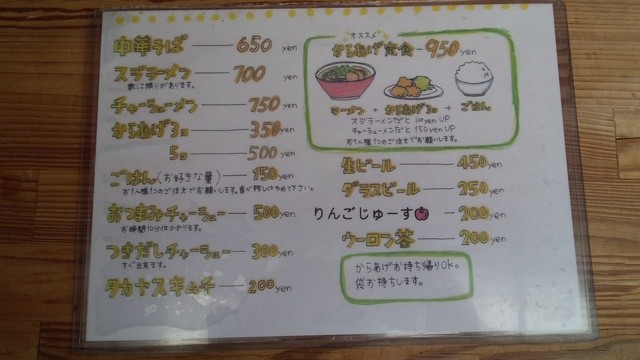 中華そば 650 yen
スジラーメン 700 yen
数に限りがあります。
チャーシューメン 750 yen
からあげ3コ 350 yen
5コ 500 yen
ごはん(お好きな量) 150 yen
お1人様1つのご注文でお願いします。食べ残しはやめて下さい。
おつまみチャーシュー 500 yen
お時間10分位かかります。
つきだしチャーシュー 300 yen
すぐ出来ます。
タカナスキムチ 200 yen
オススメ
からあげ定食 950 yen
ラーメン + からあげ3コ + ごはん
スジラーメンだと yen UP
チャーシューメンだと 150 yen UP
お1人様1つのご注文でお願いします。
生ビール 450 yen
グラスビール 250 yen
りんごじゅーす 200 yen
ウーロン茶 200 yen
からあげお持ち帰りOK。
袋お持ちします。